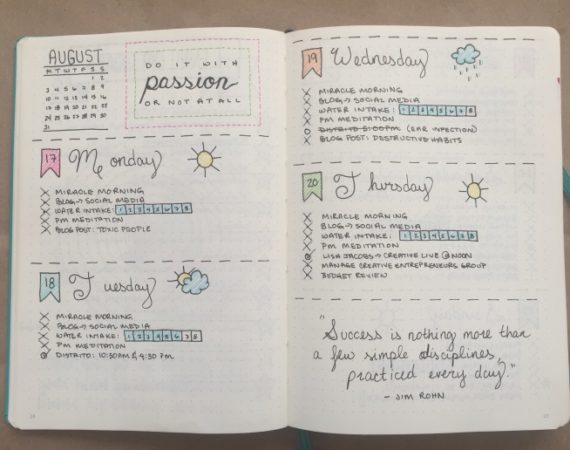 AUGUST
M T W T F S S
1 2
3 4 5 6 7 8 9
10 11 12 13 14 15 16
17 18 19 20 21 22 23
24 25 26 27 28 29 30
31
DO IT WITH
passion
OR NOT AT ALL
17 Monday
MIRACLE MORNING
BLOG → SOCIAL MEDIA
WATER INTAKE: 1 2 3 4 5 6 7 8
PM MEDITATION
BLOG POST: TOXIC PEOPLE
18 Tuesday
MIRACLE MORNING
BLOG → SOCIAL MEDIA
WATER INTAKE: 1 2 3 4 5 6 7 8
PM MEDITATION
DISTRITO: 10:30AM & 4:30 PM
19 Wednesday
MIRACLE MORNING
BLOG → SOCIAL MEDIA
WATER INTAKE: 1 2 3 4 5 6 7 8
PM MEDITATION
DISTRITO 5:00PM (EAR INFECTION)
BLOG POST: DESTRUCTIVE HABITS
20 Thursday
MIRACLE MORNING
BLOG → SOCIAL MEDIA
WATER INTAKE: 1 2 3 4 5 6 7 8
PM MEDITATION
LISA JACOBS → CREATIVE LIVE @ NOON
MANAGE CREATIVE ENTREPRENEURS GROUP
BUDGET REVIEW
"Success is nothing more than
a few simple disciplines,
practiced every day."
- JIM ROHN